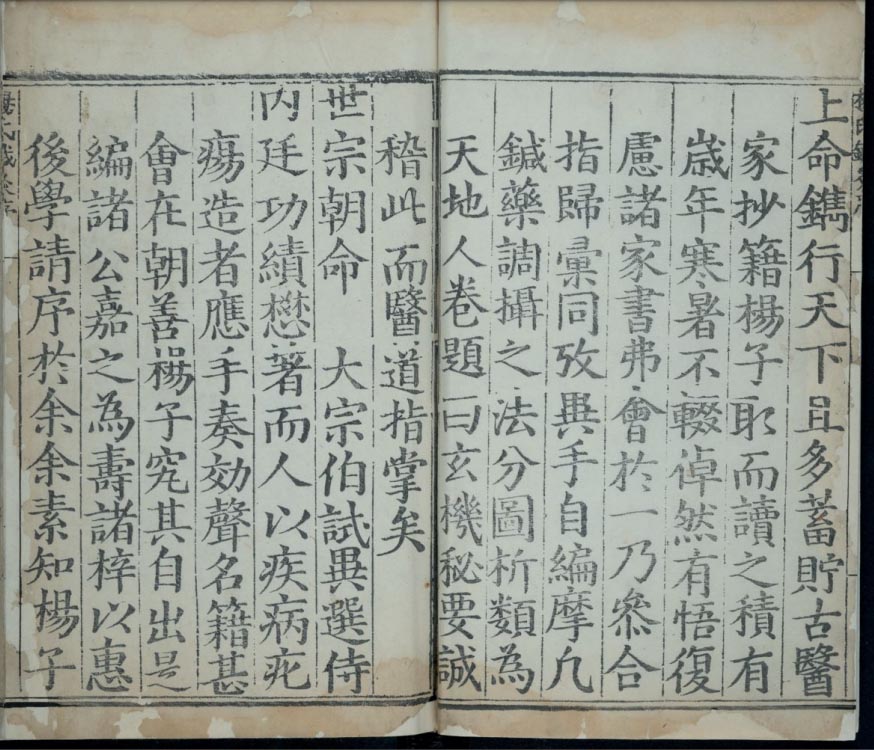 上命鐫行天下且多蓄貯古醫
家抄籍楊子取而讀之積有
歲年寒暑不輟倬然有悟復
慮諸家書弗會於一乃叅合
指歸彙同攷異手自編摩凡
鍼藥調攝之法分圖析類為
天地人卷題曰玄機秘要誠
稽此而醫道指掌矣
世宗朝命　大宗伯試異選侍
內廷功績懋著而人以疾病疕
瘍造者應手奏効聲名籍甚
會在朝善楊子究其自出是
編諸公嘉之為壽諸梓以惠
後學請序於余余素知楊子